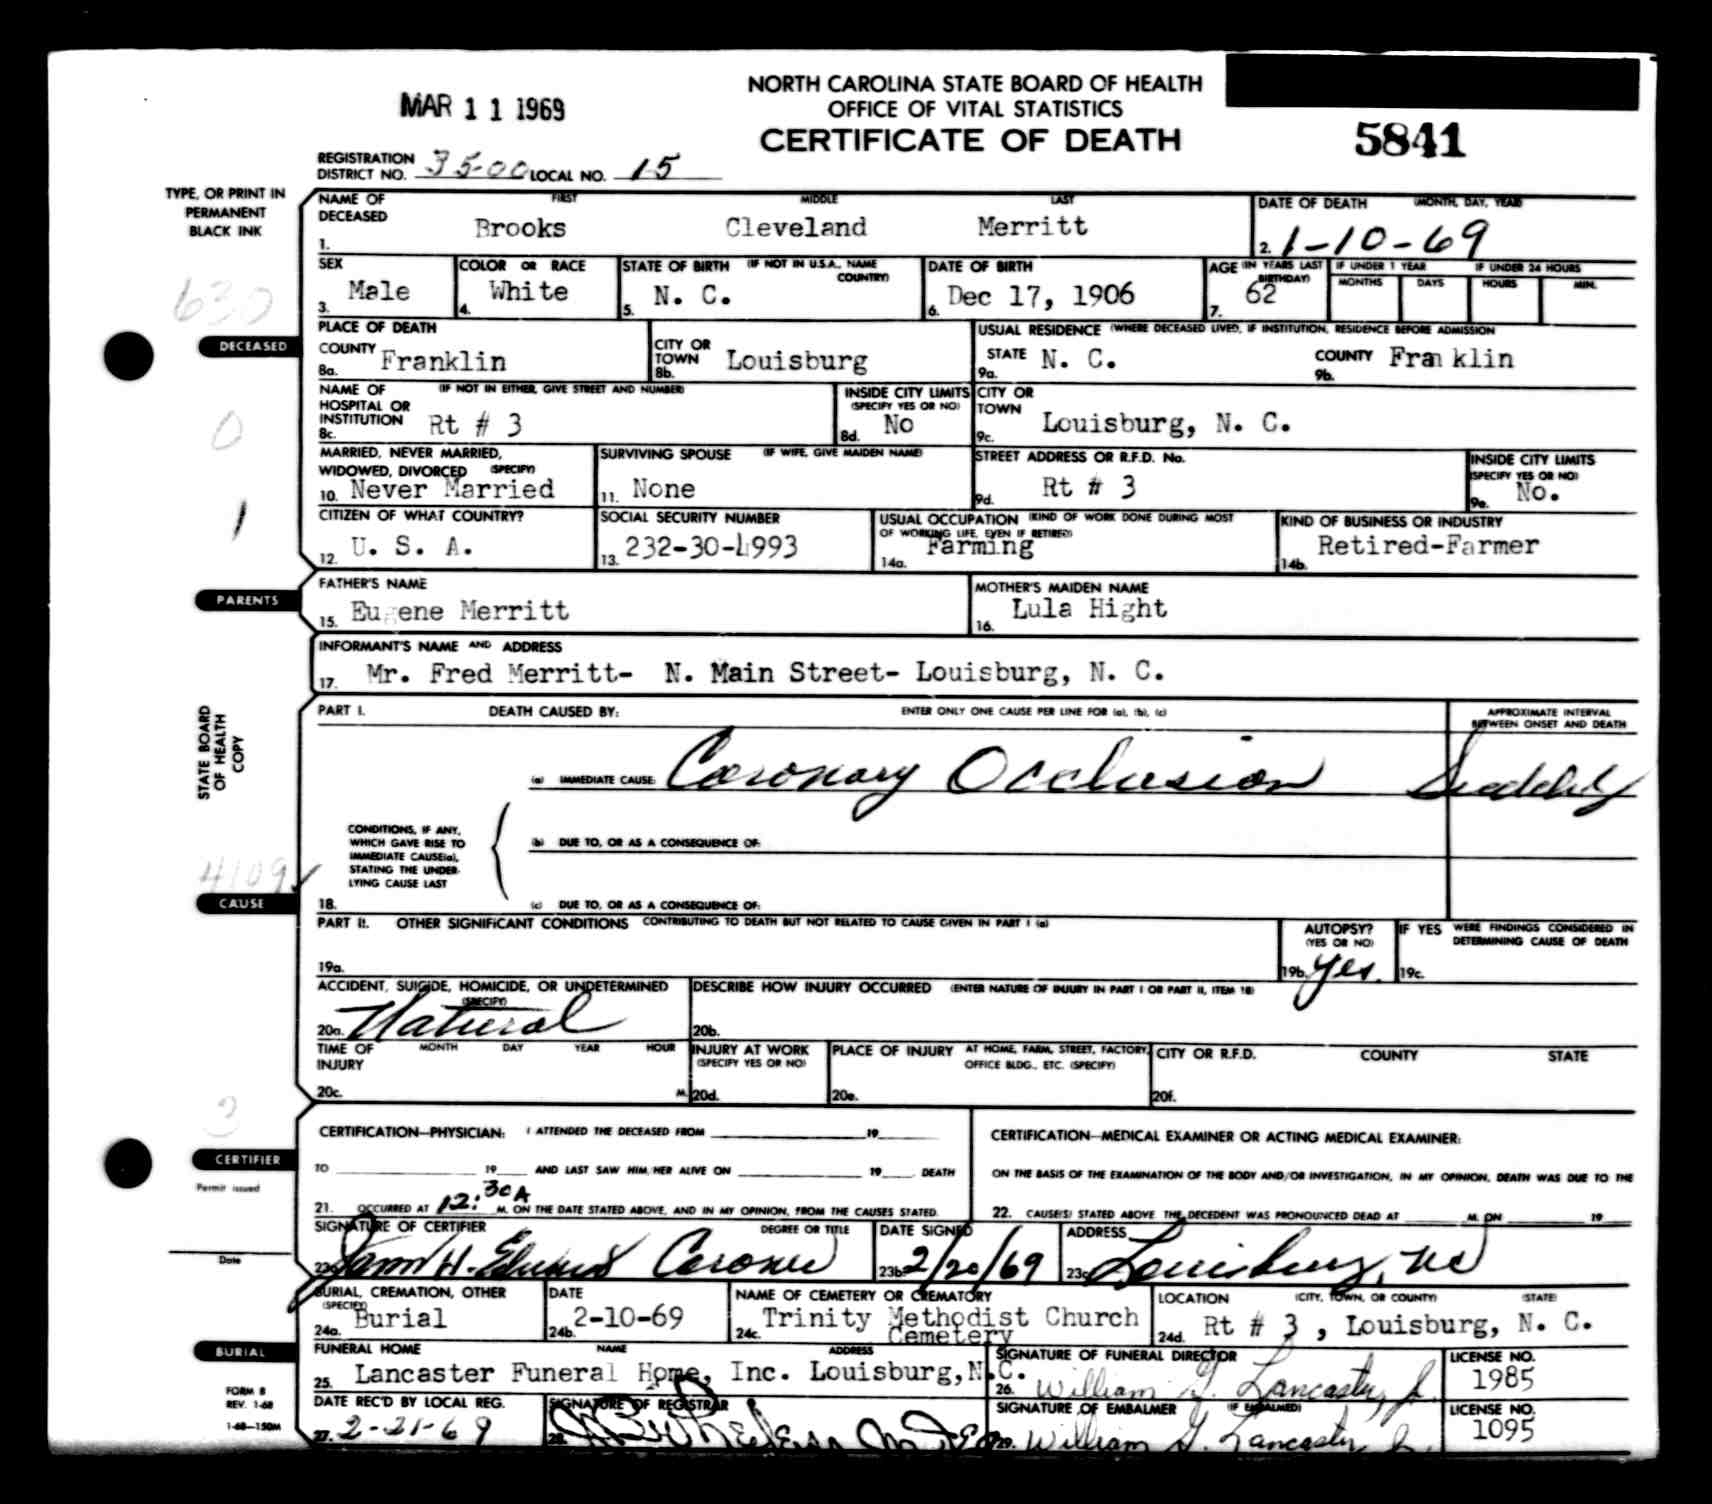 MAR 11 1969
NORTH CAROLINA STATE BOARD OF HEALTH
OFFICE OF VITAL STATISTICS
CERTIFICATE OF DEATH
5841
REGISTRATION DISTRICT NO. 35-00 LOCAL NO. 15
TYPE, OR PRINT IN
PERMANENT
BLACK INK
NAME OF DECEASED FIRST MIDDLE LAST
1. Brooks Cleveland Merritt
DATE OF DEATH (MONTH, DAY, YEAR)
2. 1-10-69
SEX
3. Male
COLOR OR RACE
4. White
STATE OF BIRTH (IF NOT IN U.S.A., NAME COUNTRY)
5. N. C.
DATE OF BIRTH
6. Dec 17, 1906
AGE (IN YEARS LAST BIRTHDAY)
7. 62
IF UNDER 1 YEAR MONTHS DAYS
IF UNDER 24 HOURS HOURS MIN.
630
DECEASED
PLACE OF DEATH
8a. COUNTY Franklin
8b. CITY OR TOWN Louisburg
USUAL RESIDENCE (WHERE DECEASED LIVED, IF INSTITUTION, RESIDENCE BEFORE ADMISSION
9a. STATE N. C.
9b. COUNTY Franklin
NAME OF HOSPITAL OR INSTITUTION (IF NOT IN EITHER, GIVE STREET AND NUMBER)
8c. Rt # 3
INSIDE CITY LIMITS (SPECIFY YES OR NO)
8d. No
CITY OR TOWN
9c. Louisburg, N. C.
0
MARRIED, NEVER MARRIED, WIDOWED, DIVORCED (SPECIFY)
10. Never Married
SURVIVING SPOUSE (IF WIFE, GIVE MAIDEN NAME)
11. None
STREET ADDRESS OR R.F.D. No.
9d. Rt # 3
INSIDE CITY LIMITS (SPECIFY YES OR NO)
9e. No.
1
CITIZEN OF WHAT COUNTRY?
12. U. S. A.
SOCIAL SECURITY NUMBER
13. 232-30-4993
USUAL OCCUPATION (KIND OF WORK DONE DURING MOST OF WORKING LIFE, EVEN IF RETIRED)
14a. Farming
KIND OF BUSINESS OR INDUSTRY
14b. Retired-Farmer
PARENTS
FATHER'S NAME
15. Eugene Merritt
MOTHER'S MAIDEN NAME
16. Lula Hight
INFORMANT'S NAME AND ADDRESS
17. Mr. Fred Merritt- N. Main Street- Louisburg, N. C.
STATE BOARD
OF HEALTH
COPY
PART I. DEATH CAUSED BY: ENTER ONLY ONE CAUSE PER LINE FOR (a), (b), (c)
APPROXIMATE INTERVAL
BETWEEN ONSET AND DEATH
(a) IMMEDIATE CAUSE: Coronary Occlusion
CONDITIONS, IF ANY,
WHICH GAVE RISE TO
IMMEDIATE CAUSE(a),
STATING THE UNDER-
LYING CAUSE LAST
(b) DUE TO, OR AS A CONSEQUENCE OF:
4109
CAUSE
18. (c) DUE TO, OR AS A CONSEQUENCE OF:
PART II. OTHER SIGNIFICANT CONDITIONS CONTRIBUTING TO DEATH BUT NOT RELATED TO CAUSE GIVEN IN PART I (a)
19a.
AUTOPSY? (YES OR NO)
19b. Yes.
IF YES WERE FINDINGS CONSIDERED IN DETERMINING CAUSE OF DEATH
19c.
ACCIDENT, SUICIDE, HOMICIDE, OR UNDETERMINED (SPECIFY)
20a. Natural
DESCRIBE HOW INJURY OCCURRED (ENTER NATURE OF INJURY IN PART I OR PART II, ITEM 18)
20b.
TIME OF INJURY MONTH DAY YEAR HOUR
20c. M.
INJURY AT WORK (SPECIFY YES OR NO)
20d.
PLACE OF INJURY AT HOME, FARM, STREET, FACTORY, OFFICE BLDG., ETC. (SPECIFY)
20e.
CITY OR R.F.D. COUNTY STATE
20f.
CERTIFIER
Permit issued
Date
CERTIFICATION—PHYSICIAN: I ATTENDED THE DECEASED FROM 19
TO 19 AND LAST SAW HIM/HER ALIVE ON 19 DEATH
21. OCCURRED AT 12:30A M. ON THE DATE STATED ABOVE, AND IN MY OPINION, FROM THE CAUSES STATED.
CERTIFICATION—MEDICAL EXAMINER OR ACTING MEDICAL EXAMINER:
ON THE BASIS OF THE EXAMINATION OF THE BODY AND/OR INVESTIGATION, IN MY OPINION, DEATH WAS DUE TO THE
22. CAUSE(S) STATED ABOVE. THE DECEDENT WAS PRONOUNCED DEAD AT M. ON 19
SIGNATURE OF CERTIFIER DEGREE OR TITLE
Coroner
DATE SIGNED
23b. 2/20/69
ADDRESS
23c. Louisburg, NC
BURIAL, CREMATION, OTHER (SPECIFY)
24a. Burial
DATE
24b. 2-10-69
NAME OF CEMETERY OR CREMATORY
24c. Trinity Methodist Church Cemetery
LOCATION (CITY, TOWN, OR COUNTY) (STATE)
24d. Rt # 3 , Louisburg, N. C.
BURIAL
FUNERAL HOME NAME ADDRESS
25. Lancaster Funeral Home, Inc. Louisburg,N.C.
SIGNATURE OF FUNERAL DIRECTOR
26. William G. Lancaster, Jr.
LICENSE NO.
1985
FORM 8
REV. 1-68
1-68—150M
DATE REC'D BY LOCAL REG.
27. 2-21-69
SIGNATURE OF REGISTRAR
28.
SIGNATURE OF EMBALMER (IF EMBALMED)
29. William G. Lancaster, Jr.
LICENSE NO.
1095